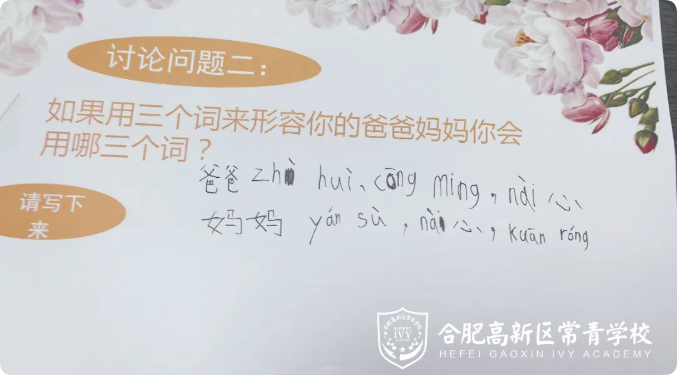 讨论问题二：
如果用三个词来形容你的爸爸妈妈你会
用哪三个词？
请写下
来
爸爸 zhì huì、cōng míng，nài 心
妈妈 yán sù，nài 心，kuān róng
合肥高新区常青学校
HEFEI GAOXIN IVY ACADEMY
HEFEI
IVY